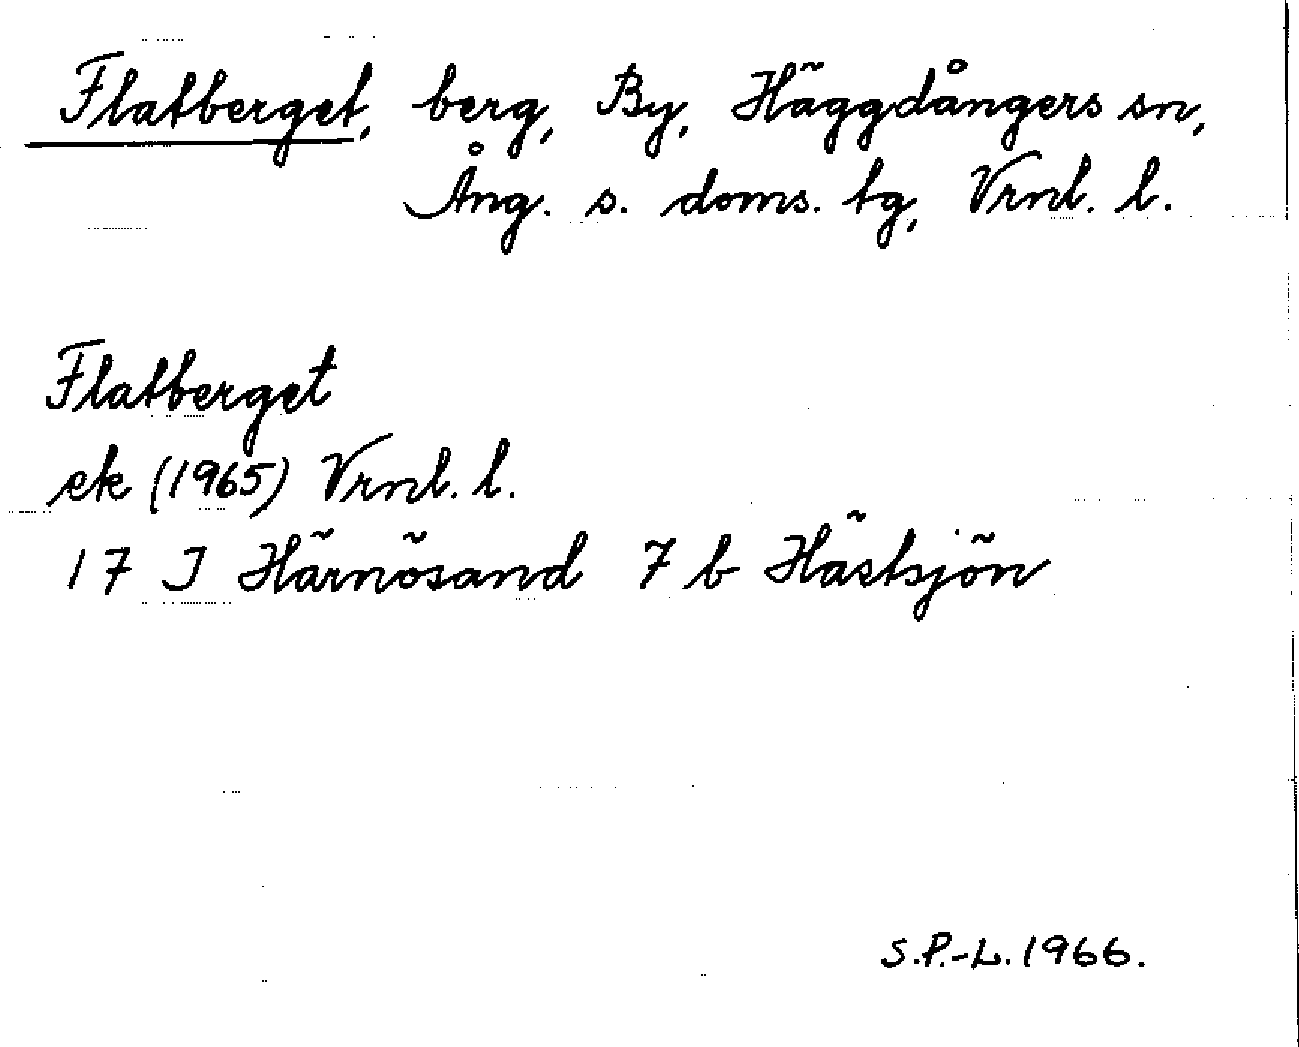 Flatberget, berg, By, Häggdångers sn,
Ång. s. doms. tg, Vrnl. l.
Flatberget
ek (1965) Vrnl. l.
17 I Härnösand 7 b Hästsjön
S.P.-L. 1966.